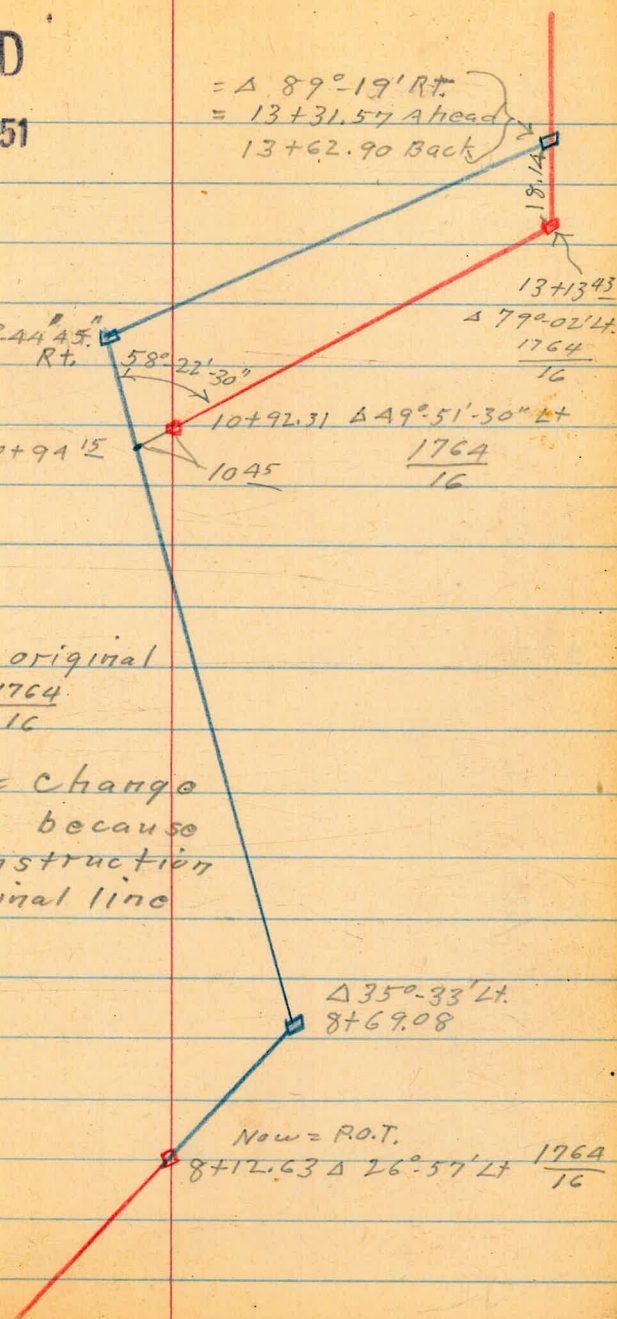 D
51
= Δ 89°-19' Rt.
= 13+31.57 Ahead
13+62.90 Back
18.14
13+13 43
Δ 79°-02' Lt.
1764
16
°-44'45."
Rt.
58°-22'-30"
10+92.31 Δ 49°-51'-30" Lt
1764
16
+94 15
10 45
original
1764
16
= change
because
nstruction
inal line
Δ 35°-33' Lt.
8+69.08
Now = P.O.T.
8+12.63 Δ 26°-57' Lt 1764
16